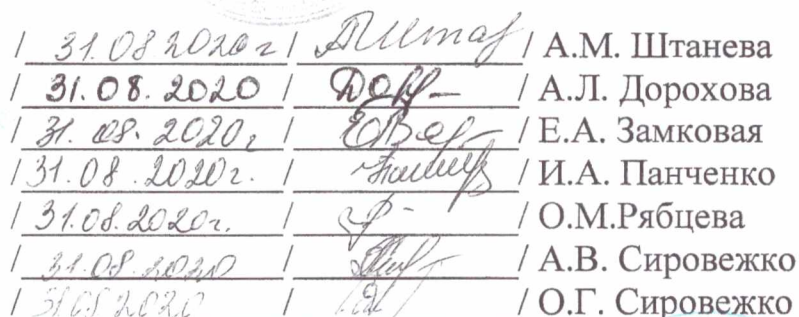 / 31.08 2020 г / / А.М. Штанева
/ 31.08.2020 / / А.Л. Дорохова
/ 31.08.2020г / / Е.А. Замковая
/ 31.08.2020г. / / И.А. Панченко
/ 31.08.2020г. / / О.М.Рябцева
/ 31.08.2020 / / А.В. Сировежко
/ 31.08.2020 / / О.Г. Сировежко